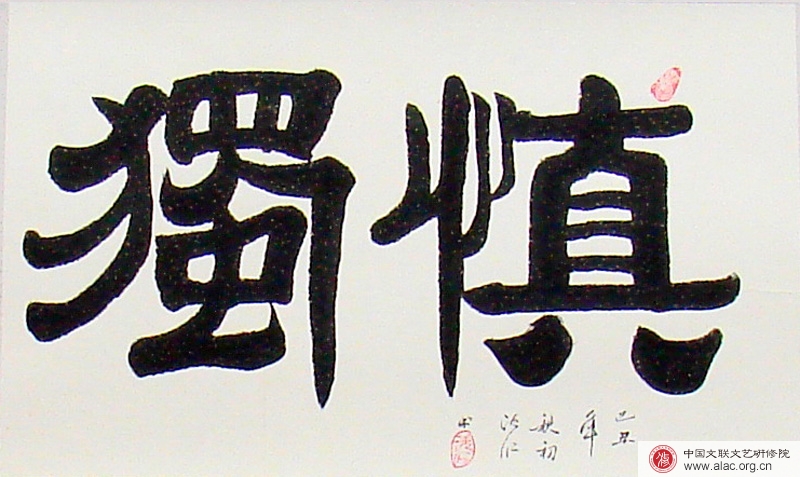 慎獨
己丑
年
秋初
治仁
书
中国文联文艺研修院
www.alac.org.cn